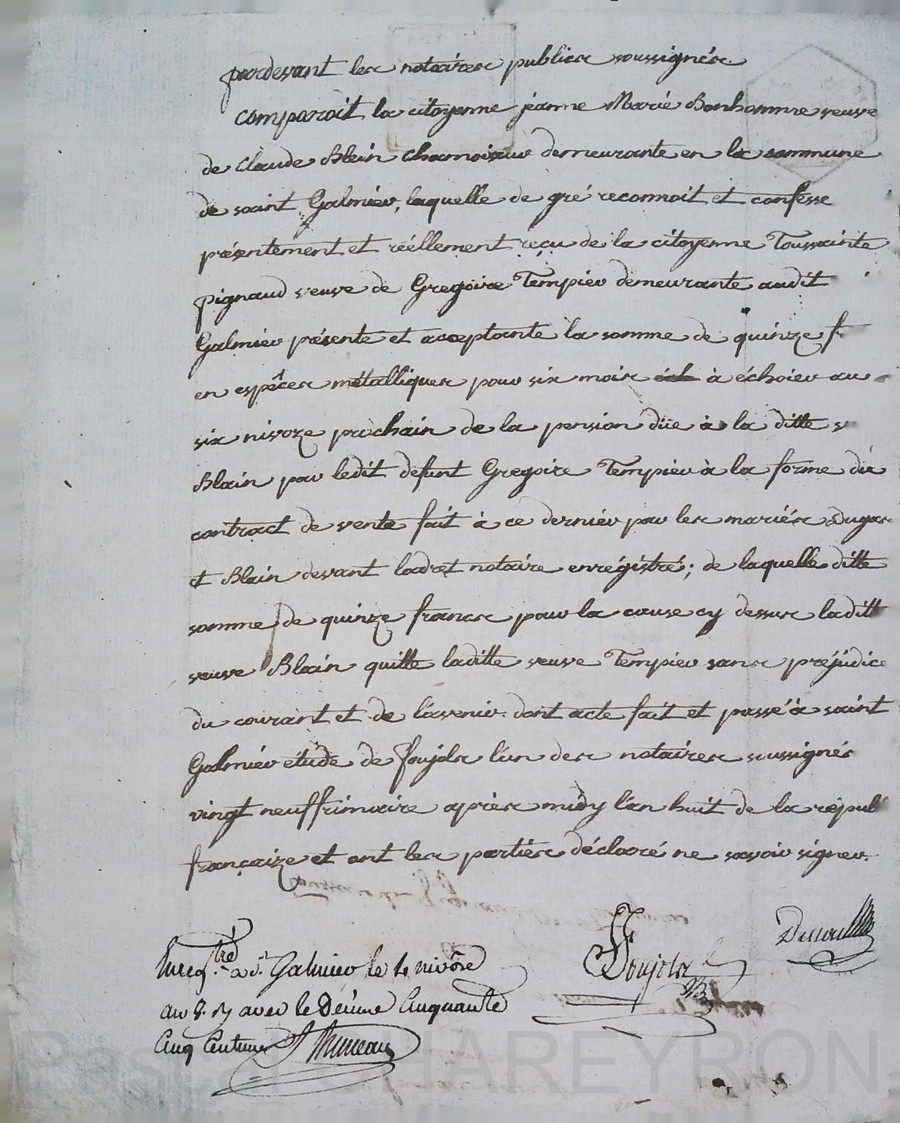 pardevant les notaires publics soussignés
comparoit la citoyenne jeanne Marie Bonhomme veuve
de Claude Blein chamoiseur demeurante en la commune
de saint Galmier, laquelle de gré reconnoit et confesse
présentement et réellement reçu de la citoyenne Toussainte
pignaud veuve de Gregoire Tempier demeurante audit
Galmier présente et acceptante la somme de quinze f
en espêces métalliques pour six mois à échoier au
six nivoze prochain de la pension düe à la ditte
Blain par ledit défunt Gregoire Tempier à la forme du
contract de vente fait à ce dernier par les mariés
et Blain devant notaire enrégistré; de laquelle ditte
somme de quinze francs pour la cause cy dessus laditt
veuve Blain quitte laditte veuve Tempier sans préjudice
du courant et de l'avenir. dont acte fait et passé à saint
Galmier étude de foujols l'un des notaires soussignés
vingt neuf frimaire après midy l'an huit de la républ
françaize et ont les parties déclaré ne savoir signer.
Foujols
Enregtré a St Galmier le 4 nivôse
an 8. avec le Décime Cinquante
Cinq Centimes
Pascal CHAREYRON